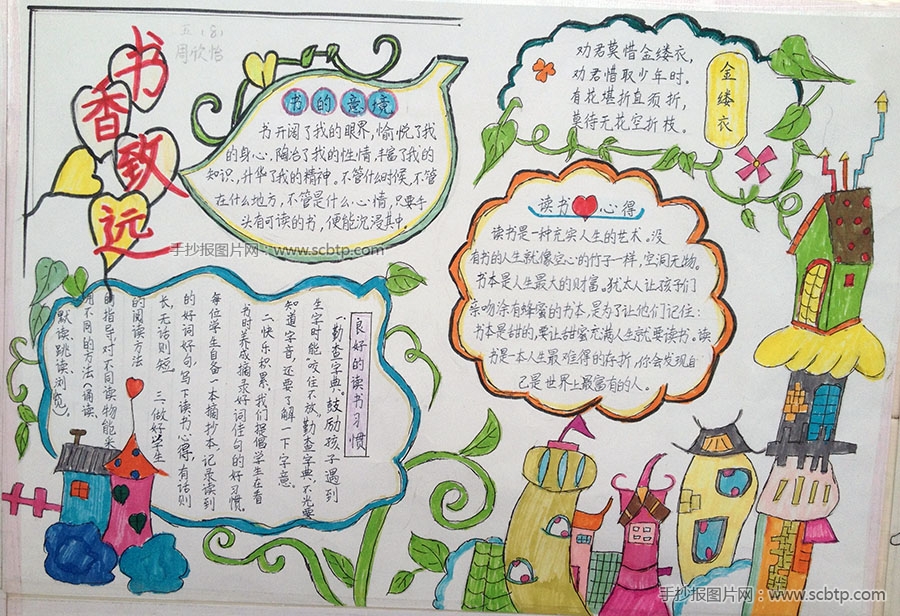 书香致远
五(8)
周欣怡
书的意境
书开阔了我的眼界,愉悦了我
的身心,陶冶了我的性情,丰富了我的
知识,升华了我的精神。不管什么时候,不管
在什么地方,不管是什么心情,只要手
头有可读的书,便能沉浸其中。
手抄报图片网:www.scbtp.com
金缕衣
劝君莫惜金缕衣,
劝君惜取少年时。
有花堪折直须折,
莫待无花空折枝。
读书心得
读书是一种充实人生的艺术。没
有书的人生就像空心的竹子一样,空洞无物。
书本是人生最大的财富。犹太人让孩子们
亲吻涂有蜂蜜的书本,是为了让他们记住:
书本是甜的,要让甜蜜充满人生就要读书。读
书是一本人生最难得的存折,你会发现自
己是世界上最富有的人。
良好的读书习惯
一、勤查字典。鼓励孩子遇到
生字时能“咬住不放”勤查字典,不光要
知道字音,还要了解一下字意。
二、快乐积累。我们提倡学生在看
书时养成摘录好词佳句的好习惯,
每位学生自备一本摘抄本,记录读到
的好词好句,写下读书心得,有话则
长,无话则短。 三、做好学生
的阅读方法
的指导,对不同读物能采
用不同的方法(诵读、
默读、跳读、浏览)。
手抄报图片网:www.scbtp.com